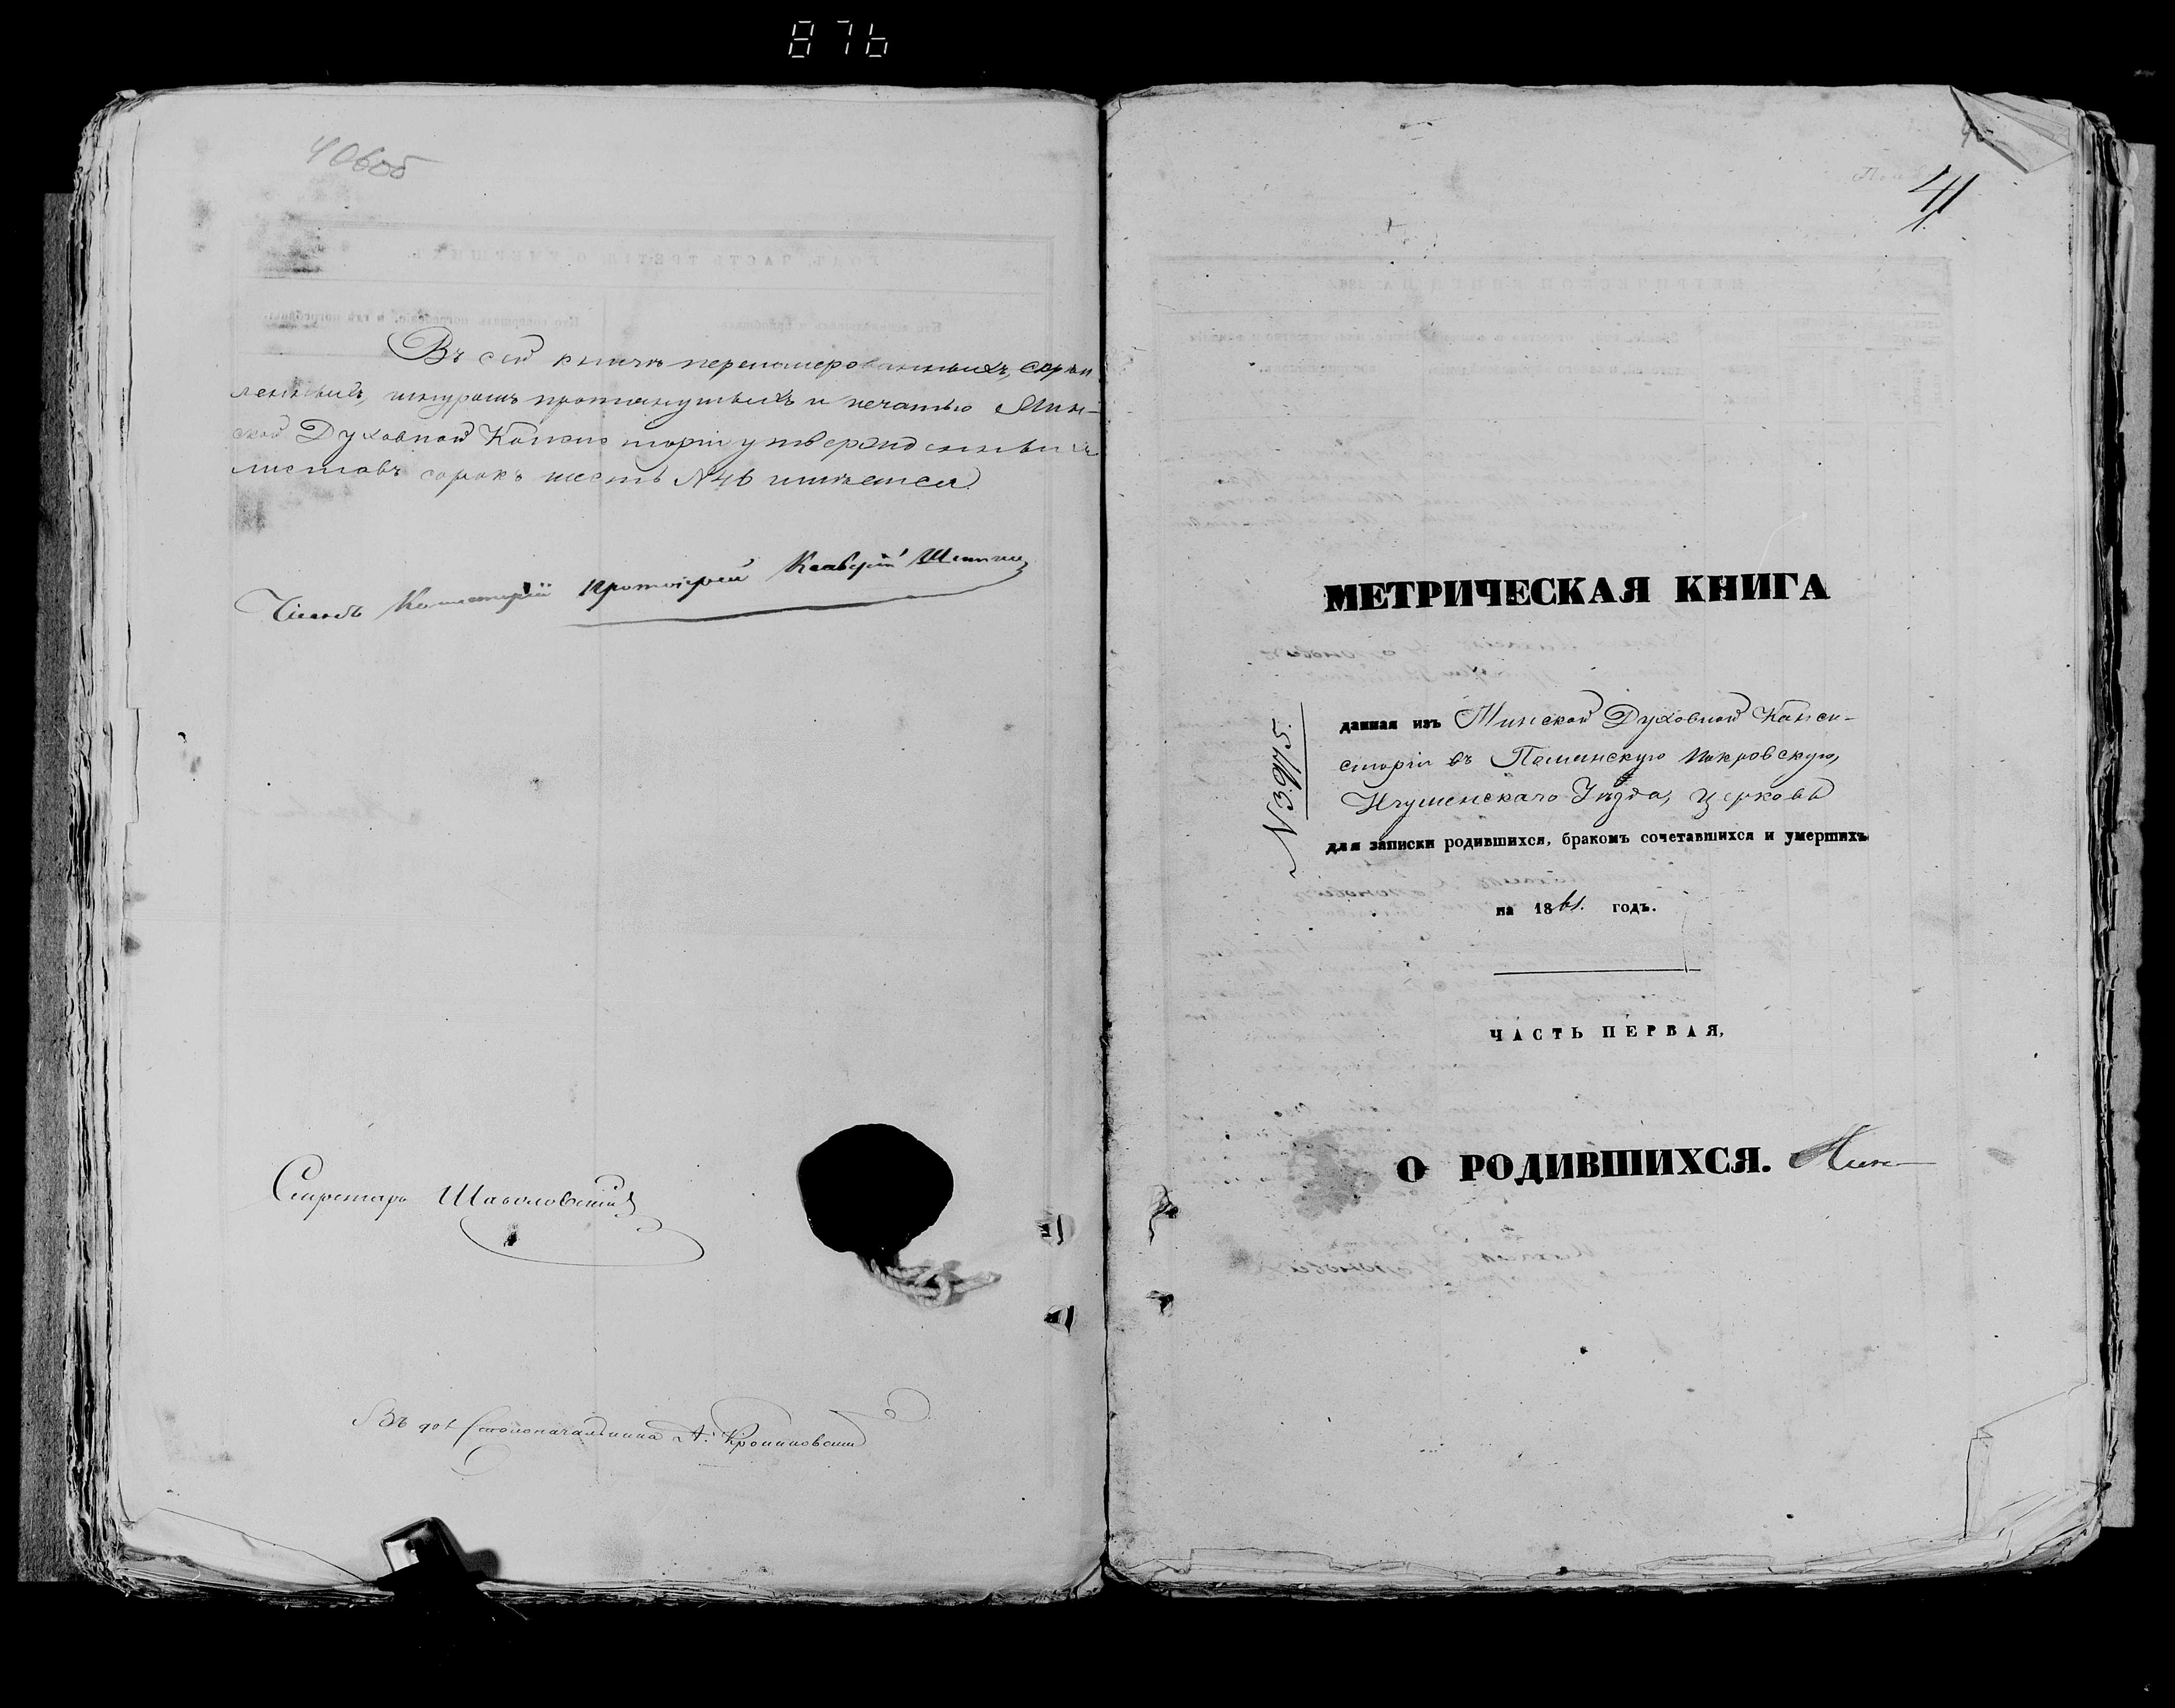 876
406об
Въ сей книгѣ перенумерованныхъ, скрѣп
ленныхъ, шнуромъ протянутыхъ и печатью Мин-
ской Духовной Консисторіи утвержденныхъ
листовъ сорокъ шесть N 46 имѣется
Членъ Консисторіи Протоіерей
Секретарь
Въ дол. Столоначальника А.
41
МЕТРИЧЕСКАЯ КНИГА
N 3975.
данная изъ Минской Духовной Конси-
сторіи въ Покровскую,
Игуменскаго Уѣзда, церковь
для записки родившихся, бракомъ сочетавшихся и умершихъ
на 1861. годъ.
ЧАСТЬ ПЕРВАЯ,
О РОДИВШИХСЯ. Мин-